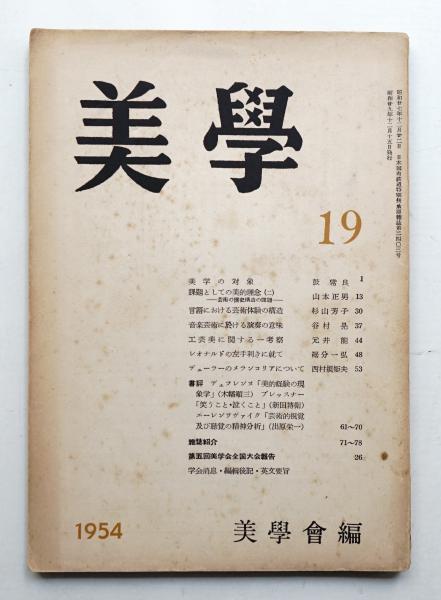 美學
19
昭和廿七年十二月廿二日 日本国有鉄道特別扱承認雑誌第二四〇三号
昭和廿九年十二月十五日発行
美学の対象 鼓常良 1
課題としての美的理念(二) 山本正男 13
——芸術の歴史構造の問題——
言語における芸術体験の構造 杉山芳子 30
音楽芸術に於ける演奏の意味 谷村晃 37
工芸美に関する一考察 元井能 44
レオナルドの左手利きに就て 裾分一弘 48
デューラーのメランコリアについて 西村規矩夫 53
書評 デュフレンヌ「美的経験の現
象学」(木幡順三) プレッスナー
「笑うこと・泣くこと」(新田博衛)
エーレンツヴァイク「芸術的視覚
及び聴覚の精神分析」(出原栄一) 61〜70
雑誌紹介 71〜78
第五回美学会全国大会報告 26
学会消息・編輯後記・英文要旨
1954
美學會編